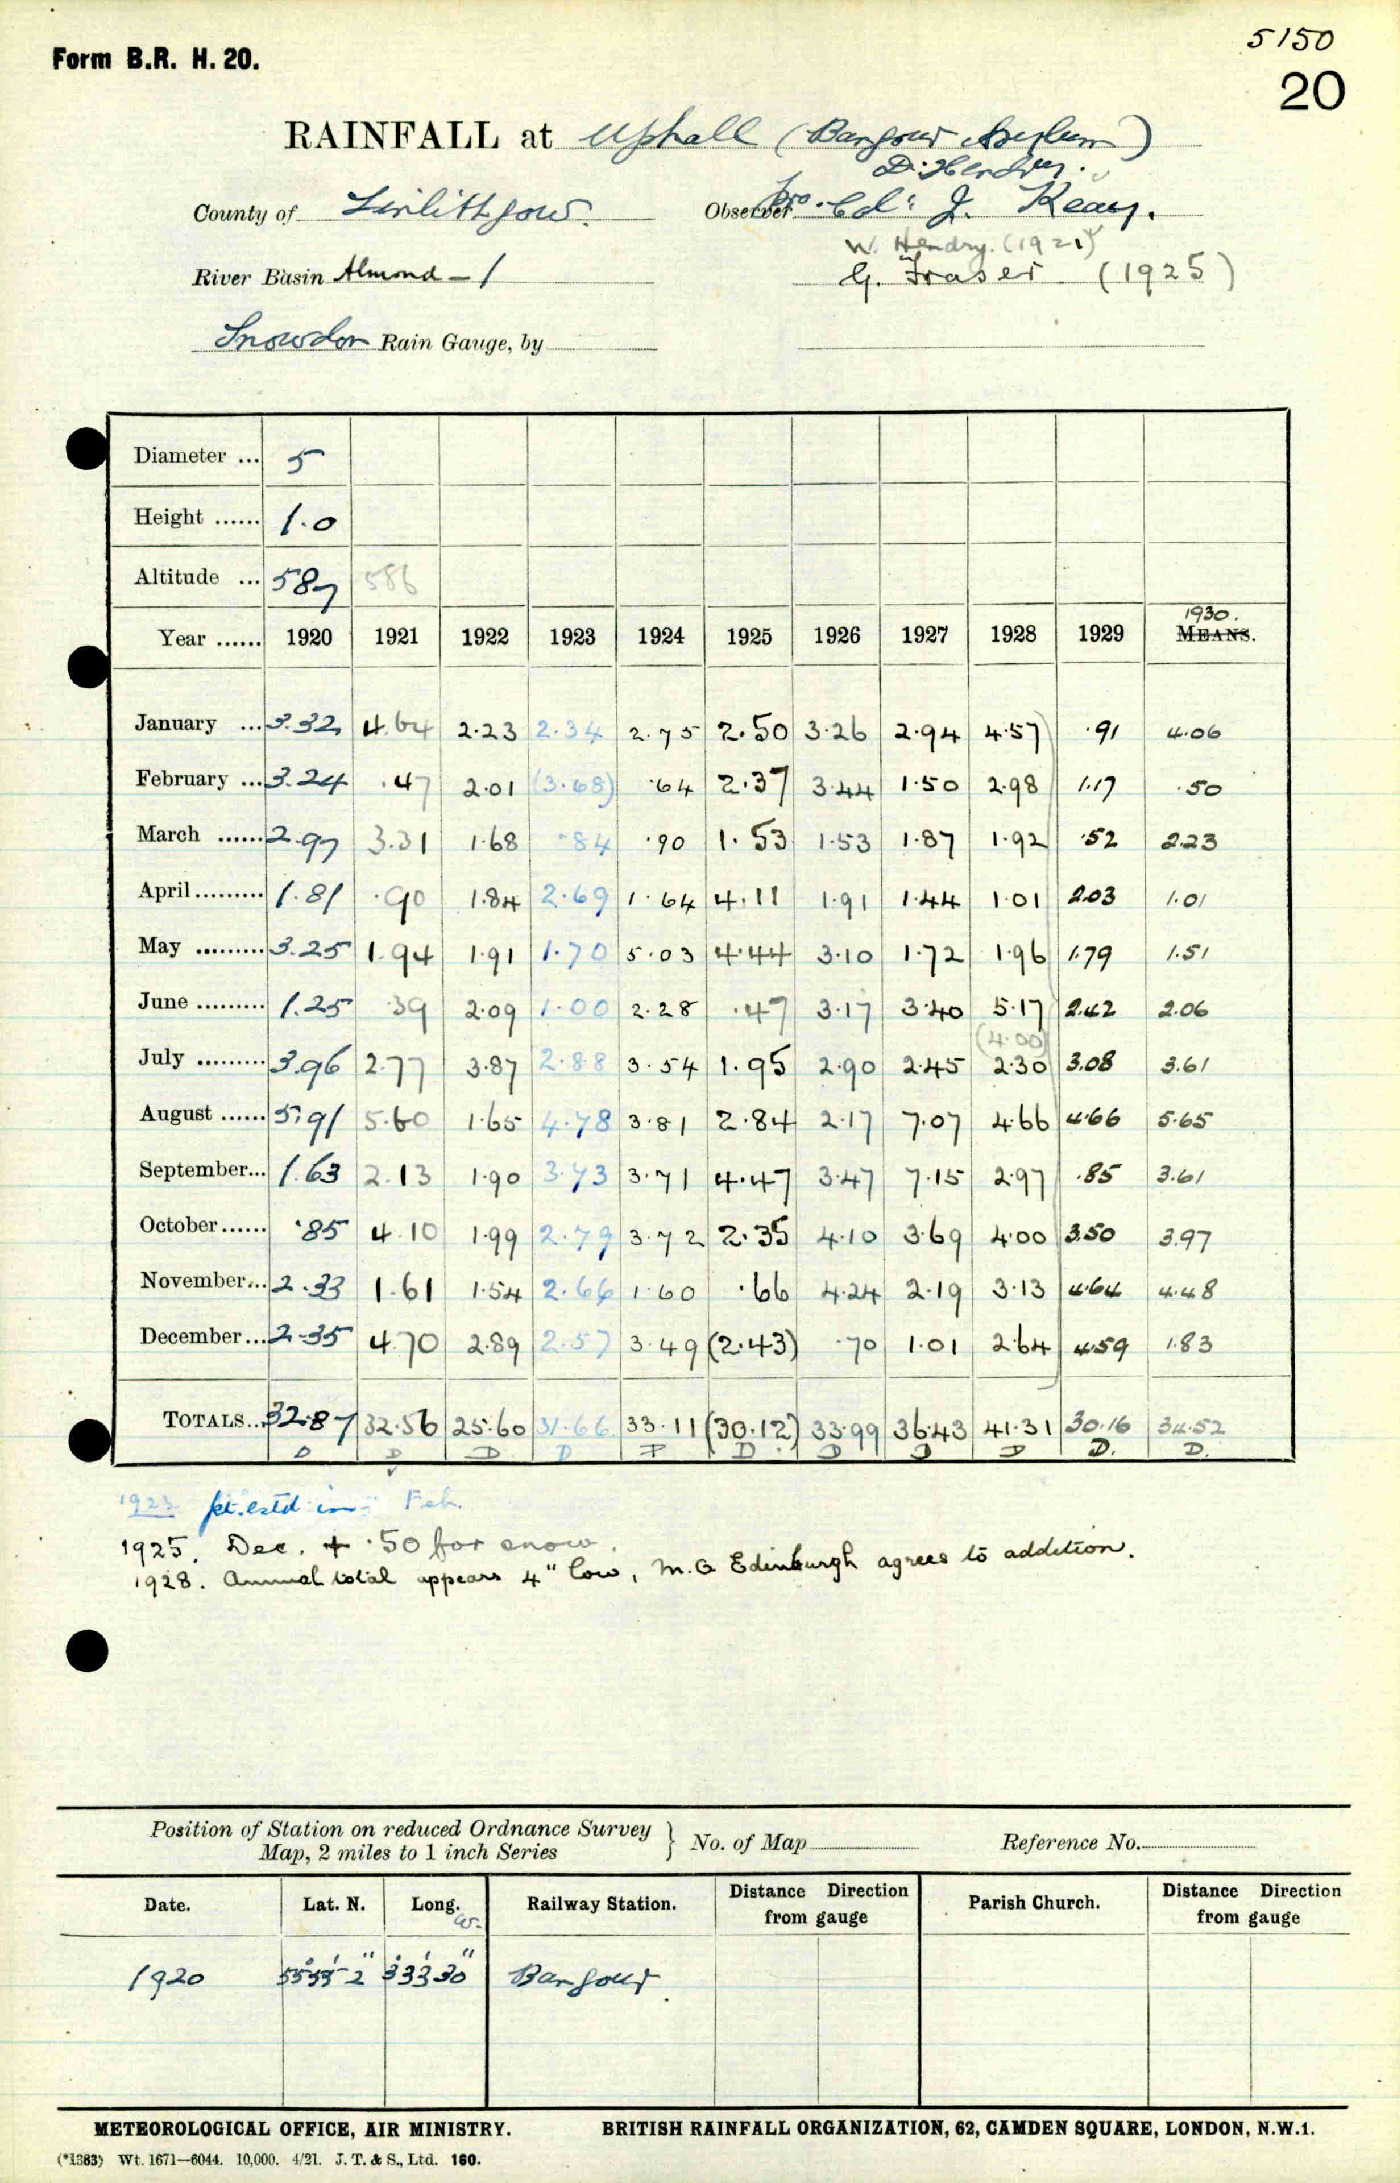 5150
Form B.R. H. 20.
20
RAINFALL at Uphall (Bangour Asylum)
D. Hendry.
County of Linlithgow. Observer pro. Col. J. Keay.
W. Hendry. (1921)
River Basin Almond - 1 G. Fraser (1925)
Snowdon Rain Gauge, by
Diameter ... 5
Height ...... 1.0
Altitude ... 587 586
1930.
Year ...... 1920 1921 1922 1923 1924 1925 1926 1927 1928 1929 MEANS.
January ... 3.32 4.64 2.23 2.34 2.75 2.50 3.26 2.94 4.57 .91 4.06
February ... 3.24 .47 2.01 (3.68) .64 2.37 3.44 1.50 2.98 1.17 .50
March ...... 2.97 3.31 1.68 .84 .90 1.53 1.53 1.87 1.92 .52 2.23
April ......... 1.81 .90 1.84 2.69 1.64 4.11 1.91 1.44 1.01 2.03 1.01
May ......... 3.25 1.94 1.91 1.70 5.03 4.44 3.10 1.72 1.96 1.79 1.51
June ......... 1.25 .39 2.09 1.00 2.28 .47 3.17 3.40 5.17 2.42 2.06
(4.00)
July ......... 3.96 2.77 3.87 2.88 3.54 1.95 2.90 2.45 2.30 3.08 3.61
August ...... 5.91 5.60 1.65 4.78 3.81 2.84 2.17 7.07 4.66 4.66 5.65
September... 1.63 2.13 1.90 3.73 3.71 4.47 3.47 7.15 2.97 .85 3.61
October...... .85 4.10 1.99 2.79 3.72 2.35 4.10 3.69 4.00 3.50 3.97
November... 2.33 1.61 1.54 2.66 1.60 .66 4.24 2.19 3.13 4.64 4.48
December ... 2.35 4.70 2.89 2.57 3.49 (2.43) .70 1.01 2.64 4.59 1.83
TOTALS... 32.87 32.56 25.60 31.66 33.11 (30.12) 33.99 36.43 41.31 30.16 34.52
D D D D F D D D D D. D.
1923 pt. estd in Feb.
1925. Dec. + .50 for snow.
1928. Annual total appears 4" low, M.O Edinburgh agrees to addition.
Position of Station on reduced Ordnance Survey
Map, 2 miles to 1 inch Series } No. of Map Reference No.
Date. Lat. N. Long. W. Railway Station. Distance Direction from gauge Parish Church. Distance Direction from gauge
1920 55° 55' 2" 3° 33' 30" Bangour.
METEOROLOGICAL OFFICE, AIR MINISTRY. BRITISH RAINFALL ORGANIZATION, 62, CAMDEN SQUARE, LONDON, N.W.1.
(*1383) Wt. 1671—6044. 10,000. 4/21. J. T. & S., Ltd. 160.